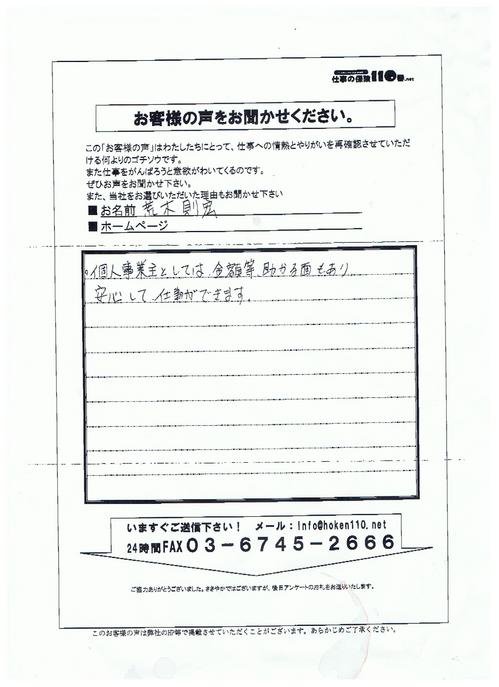 仕事の保険110番.net
お客様の声をお聞かせください。
この「お客様の声」はわたしたちにとって、仕事への情熱とやりがいを再確認させていただ
ける何よりのゴチソウです。
また仕事をがんばろうと意欲がわいてくるのです。
ぜひお声をお聞かせ下さい。
また、当社をお選びいただいた理由もお聞かせ下さい
■お名前 荒木則宏
■ホームページ
・個人事業主としては金額等助かる面もあり
安心して仕事ができます。
いますぐご送信下さい！ メール：Info@hoken110.net
24時間FAX03-6745-2666
ご協力ありがとうございました。ささやかではございますが、後日アンケートのお礼をお送りいたします。
このお客様の声は弊社のHP等で掲載させていただくことがございます。あらかじめご了承ください。